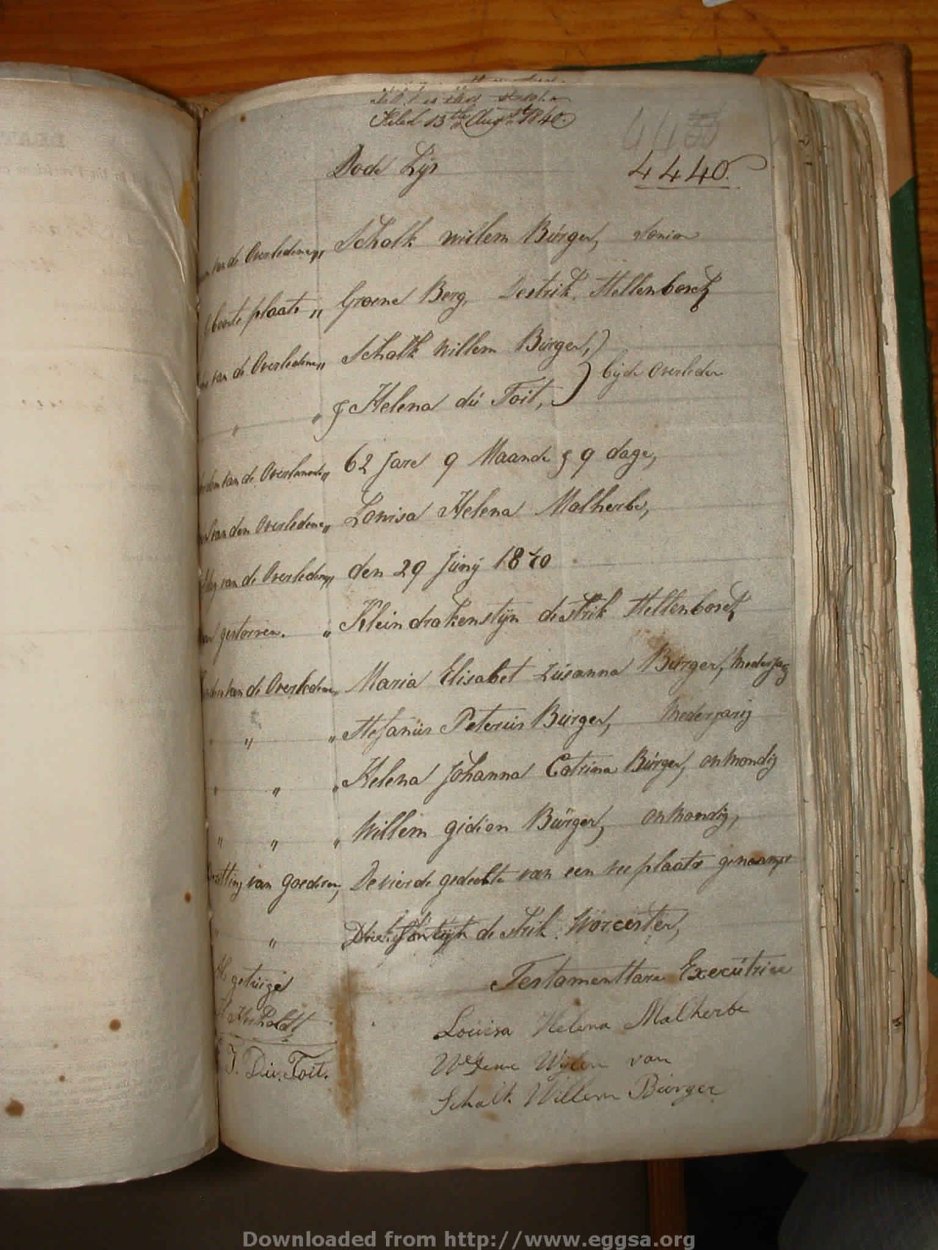 Filed 13th Augt 1840.
Dode Lijs
4440.
van de Overledene,, Schalk willem Bürger, senior
Geboorte plaats ,, Groene Berg, Destrik, Stellenbosch
van de Overledene,, Schalk Willem Bürger, } bijde Overleden
,, ,, & Helena dü Toit,
van de Overledene,, 62 Jare 9 Maande & 9 dage,
van den Overledene,, Lowisa Helena Malherbe,
van de Overledene,, den 29 Junij 1840
gestorven. ,, Klein drakenstijn destrik Stellenbosch
van de Overledene,, Maria Elisabet Susanna Bürger, Mederjarig
,, ,, ,, Stefanüs Peterüs Bürger, Mederjarig
,, ,, ,, Helena Johanna Catrina Bürger, onmondig
,, ,, ,, Willem gidion Bürger, onmondig,
van Goederen, De vierde gedeelte van een vee plaats genaamt
,, ,, Drie fontijn destrik Worcester,
Als getüige
Testamenttare Execütrice
Louisa Helena Malherbe
J. Du Toit.
Wedewe van
Schalk Willem Bürger
Downloaded from http://www.eggsa.org